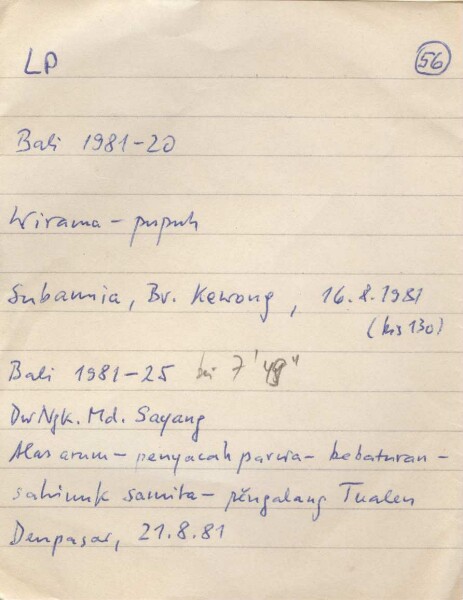 LP 56
Bali 1981-20
Wirama - pupuh
Subamia, Br. Kewong, 16.8.1981
(bis 130)
Bali 1981-25 bei 7'49"
Dw Ngk. Md. Sayang
Alas arum - penyacah parwa - bebaturan -
samita - pĕngalang Tualen
Denpasar, 21.8.81